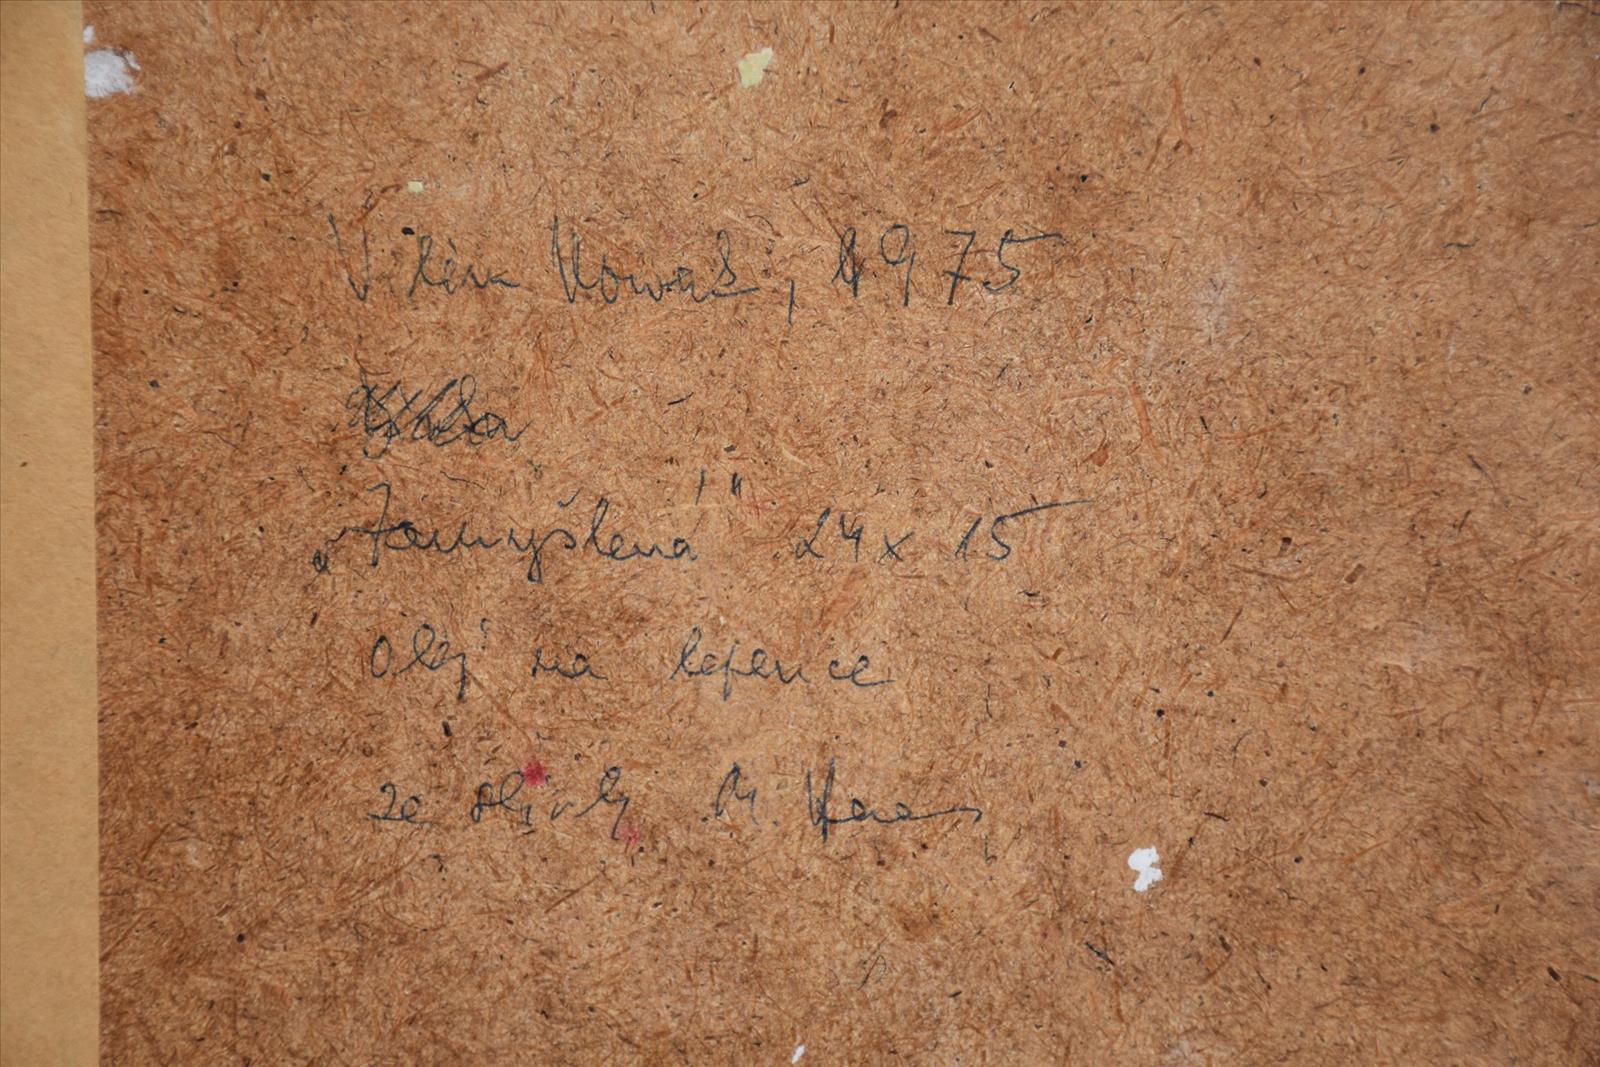 Vilém Nowak, 1975
„Zamyšlená" 24x15
olej na lepence
ze sbírky M. Haas